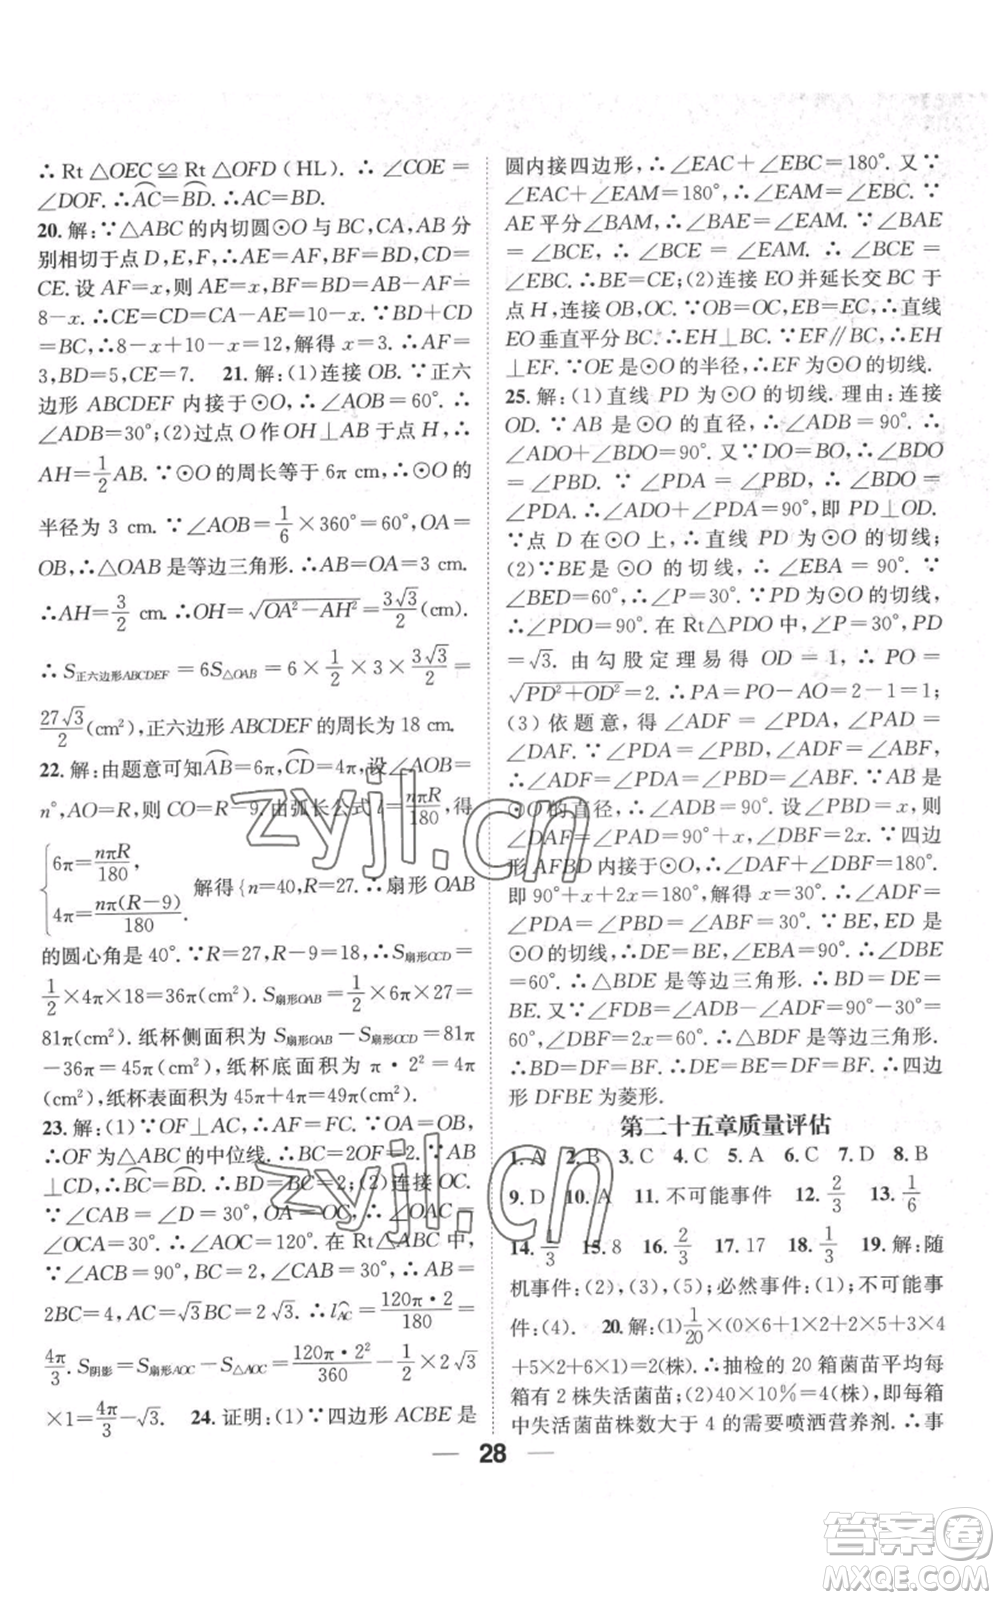 ∴ Rt △OEC ≌ Rt △OFD (HL). ∴ ∠COE =
∠DOF. ∴A͡C=B͡D. ∴AC=BD.
20. 解:∵△ABC 的内切圆⊙O 与 BC,CA,AB 分
别相切于点 D,E,F,∴AF=AE,BF=BD,CD=
CE. 设 AF=x,则 AE=x,BF=BD=AB-AF=
8-x. ∴CE=CD=CA-AE=10-x. ∵BD+CD
=BC,∴8-x+10-x=12,解得 x=3. ∴AF=
3,BD=5,CE=7. 21. 解:(1)连接 OB. ∵正六
边形 ABCDEF 内接于⊙O,∴∠AOB=60°. ∴
∠ADB=30°;(2)过点 O 作 OH⊥AB 于点 H,∴
AH=1/2 AB. ∵⊙O 的周长等于 6π cm,∴⊙O 的
半径为 3 cm. ∵∠AOB=1/6×360°=60°,OA=
OB,∴△OAB 是等边三角形. ∴AB=OA=3 cm.
∴AH=3/2 cm. ∴OH=√(OA²-AH²)=3√3/2(cm).
∴S正六边形ABCDEF=6S△OAB=6×1/2×3×3√3/2=
27√3/2(cm²),正六边形 ABCDEF 的周长为 18 cm.
22. 解:由题意可知A͡B=6π,C͡D=4π,设∠AOB=
n°,AO=R,则 CO=R-9. 由弧长公式 l=nπR/180,得
{6π=nπR/180,
4π=nπ(R-9)/180. 解得{n=40,R=27. ∴扇形 OAB
的圆心角是 40°. ∵R=27,R-9=18,∴S扇形OCD=
1/2×4π×18=36π(cm²),S扇形OAB=1/2×6π×27=
81π(cm²). 纸杯侧面积为 S扇形OAB-S扇形OCD=81π
-36π=45π(cm²). 纸杯底面积为 π·2²=4π
(cm²),纸杯表面积为 45π+4π=49π(cm²).
23. 解:(1)∵OF⊥AC,∴AF=FC. ∵OA=OB,
∴OF 为△ABC 的中位线. ∴BC=2OF=2. ∵
B͡C=B͡D. ∴BD=BC=2;(2)连接 OC.
∵∠CAB=∠D=30°,OA=OC,∴∠OAC=
∠OCA=30°. ∴∠AOC=120°. 在 Rt△ABC 中,
∵∠ACB=90°,∠CAB=30°,∴AB=
2BC=4,AC=√3BC=2√3. ∴lA͡C=120π·2/180=
4π/3. S阴影=S扇形AOC-S△AOC=120π·2²/360-1/2×2√3
×1=4π/3-√3. 24. 证明:(1)∵四边形 ACBE 是
圆内接四边形,∴∠EAC+∠EBC=180°. 又∵
∠EAC+∠EAM=180°,∴∠EAM=∠EBC. ∵
AE平分∠BAM,∴∠BAE=∠EAM. ∵∠BAE
=∠BCE,∴∠BCE=∠EAM. ∴∠BCE=
∠EBC. ∴BE=CE;(2)连接 EO 并延长交 BC 于
点 H,连接 OB,OC. ∵OB=OC,EB=EC,∴直线
EO 垂直平分 BC. ∴EH⊥BC. ∵EF∥BC,∴EH
⊥EF. ∵OE 是⊙O 的半径,∴EF 为⊙O 的切线.
25. 解:(1)直线 PD 为⊙O 的切线. 理由:连接
OD. ∵AB 是⊙O 的直径,∴∠ADB=90°.
∴∠ADO+∠BDO=90°. 又∵DO=BO,∴∠BDO
=∠PBD. ∵∠PDA=∠PBD,∴∠BDO=
∠PDA. ∴∠ADO+∠PDA=90°,即 PD⊥OD.
∵点 D 在⊙O 上,∴直线 PD 为⊙O 的切线;
(2)∵BE是⊙O 的切线,∴∠EBA=90°. ∵
∠BED=60°,∴∠P=30°. ∵PD为⊙O 的切线,
∴∠PDO=90°. 在 Rt△PDO 中,∠P=30°,PD
=√3. 由勾股定理易得 OD=1,∴PO=
√(PD²+OD²)=2. ∴PA=PO-AO=2-1=1;
(3)依题意,得∠ADF=∠PDA,∠PAD=
∠DAF. ∵∠PDA=∠PBD,∠ADF=∠ABF,
∴∠ADF=∠PDA=∠PBD=∠ABF. ∵AB是
⊙O 的直径,∴∠ADB=90°. 设∠PBD=x,则
∠DAF=∠PAD=90°+x,∠DBF=2x. ∵四边
形 AFBD 内接于⊙O,∴∠DAF+∠DBF=180°.
即 90°+x+2x=180°,解得 x=30°. ∴∠ADF=
∠PDA=∠PBD=∠ABF=30°. ∵BE,ED 是
⊙O 的切线,∴DE=BE,∠EBA=90°. ∴∠DBE
=60°. ∴△BDE 是等边三角形. ∴BD=DE=
BE. 又∵∠FDB=∠ADB-∠ADF=90°-30°=
60°,∠DBF=2x=60°,∴△BDF 是等边三角形.
∴BD=DF=BF. ∴DE=BE=DF=BF. ∴四边
形 DFBE 为菱形.
第二十五章质量评估
1. A 2. B 3. C 4. C 5. A 6. C 7. D 8. B
9. D 10. A 11. 不可能事件 12. 2/3 13. 1/6
14. 1/3 15. 8 16. 2/3 17. 17 18. 1/3 19. 解:随
机事件:(2),(3),(5);必然事件:(1);不可能事
件:(4). 20. 解:(1)1/20×(0×6+1×2+2×5+3×4
+5×2+6×1)=2(株). ∴抽检的 20 箱菌苗平均每
箱有 2 株失活菌苗;(2)40×10%=4(株),∴每箱
中失活菌苗株数大于 4 的需要喷洒营养剂. ∴事
28
zyjl.cn
zyjl.cn
答案圈
MXQE.COM